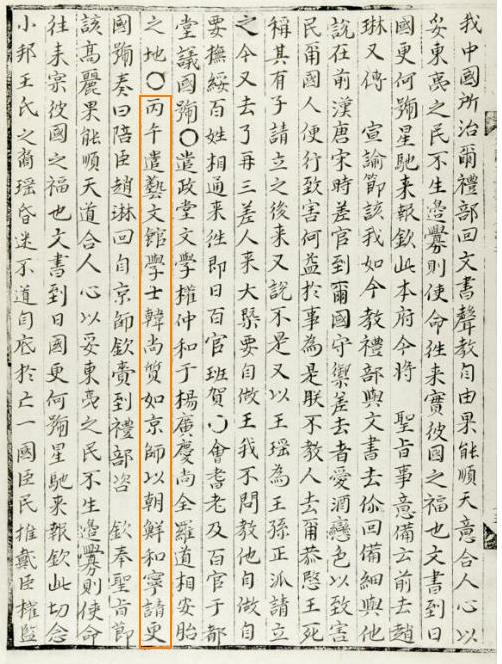 我中國所治爾禮部回文書聲教自由果能順天意合人心以
妥東夷之民不生邊釁則使命往來實彼國之福也文書到日
國更何號星馳來報欽此本府今將 聖旨事意備云前去趙
琳又傳 宣諭節該我如今教禮部與文書去你回備細與他
說在前漢唐宋時差官到爾國守禦差去者愛酒戀色以致害
民爾國人便行致害何益於事為是朕不教人去爾恭愍王死
稱其有子請立之後來又說不是又以王瑤為王孫正派請立
之今又去了再三差人來大槩要自做王我不問教他自做自
要撫綏百姓相通來往即日百官班賀〇會耆老及百官于都
堂議國號〇遣政堂文學權仲和于楊廣慶尚全羅道相安胎
之地〇丙午遣藝文館學士韓尚質如京師以朝鮮和寧請更
國號奏曰陪臣趙琳回自京師欽賫到禮部咨 欽奉聖旨節
該高麗果能順天道合人心以妥東夷之民不生邊釁則使命
往來寔彼國之福也文書到日國更何號星馳來報欽此切念
小邦王氏之裔瑤昏迷不道自底於亡一國臣民推戴臣權監